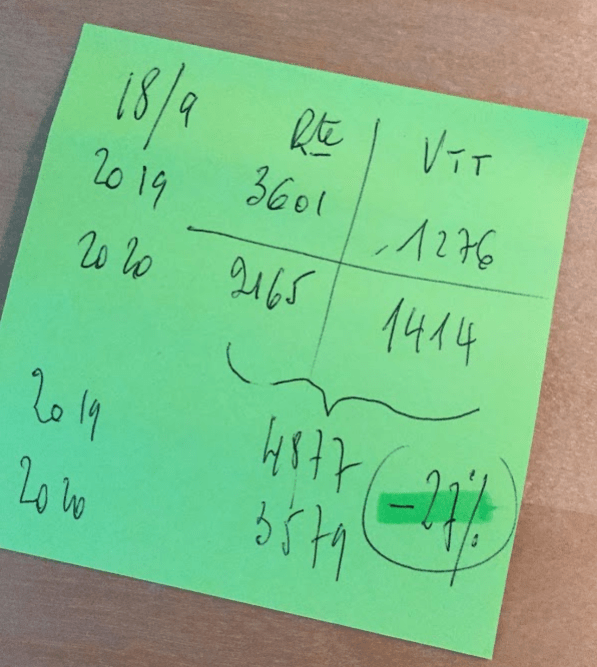 18/9 Rte VTT
2019 3601 1276
2020 2165 1414
2019 4877
2020 3579 -27%